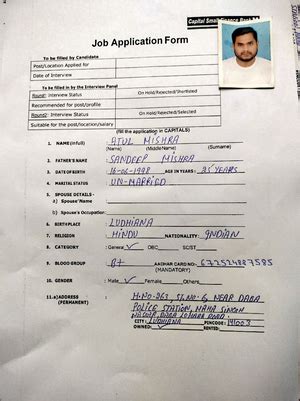 Capital Small Finance Bank
Job Application Form
To be filled by Candidate
Post/Location Applied for
Date of Interview
To be filled in by the Interview Panel
Round1 Interview Status On Hold/Rejected/Shortlisted
Recommended for post/profile
Round2 Interview Status On Hold/Rejected/Selected
Suitable for the post/location/salary
(fill the application in CAPITALS)
1. NAME (Infull) ATUL MISHRA
(Name) (MiddleName) (Surname)
2. FATHER'S NAME SANDEEP MISHRA
3. DATE OF BIRTH 16-06-1998 AGE IN YEARS: 25 YEARS
4. MARITAL STATUS UN-MARRIED
5. SPOUSE DETAILS -
a) Spouse' Name
b) Spouse's Occupation:
6. BIRTH PLACE LUDHIANA
7. RELIGION HINDU NATIONALITY: INDIAN
8. CATEGORY General ✓ OBC SC/ST
9. BLOOD GROUP B+ AADHAR CARD NO: 672524887585
(MANDATORY)
10. GENDER Male ✓ Female Others
11.a) ADDRESS H.NO-262, St.No-6, NEAR DABA
(PERMANENT) POLICE STATION, MAHA SINGH
NAGAR, DABA LOHARA ROAD
CITY: LUDHIANA PINCODE: 141003
OWNED: ✓ RENTED: